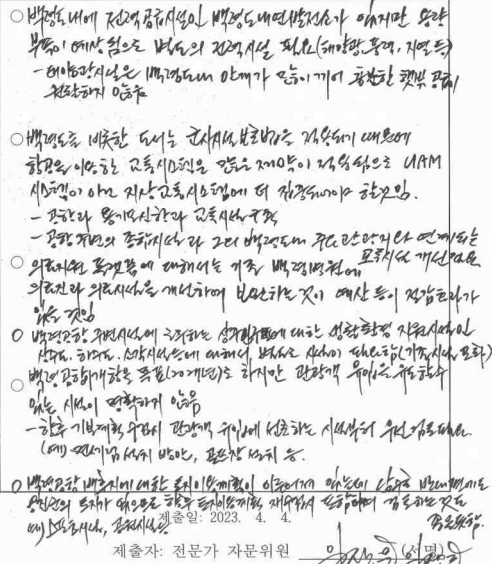 ○ 백령도내에 전력공급시설인 백령도내연발전소가 있지만 용량
부족이 예상됨으로 별도의 전력시설 필요(태양광, 풍력, 지열 등)
- 태양광시설은 백령도내 안개가 많이 끼어 충분한 햇빛 공급이
원활하지 않음
○ 백령도를 비롯한 도서는 군사시설보호법을 적용되기 때문에
항공을 이용하는 교통시스템은 많은 제약이 적용됨으로 UAM
시스템이 아닌 지상교통시스템에 더 집중되어야 할것임.
- 공항과 용기포신항과 교통시설 구축
- 공항 주변의 종합시설과 그리 백령도내 주요관광지와 연계되는
교통시설 개선 필요
○ 의료지원 문제에 대해서는 기존 백령병원에
의료진과 의료시설을 개선하여 보완하는 것이 예산 등이 절감효과가
있을 것임
○ 백령공항 주변시설에 대한 생활환경 지원시설인
상수도, 하수도, 소각시설등에 대해서 별도로 시설이 필요함(기존시설 포화)
○ 백령공항개항을 목표(20개년)로 하지만 관광객 유입을 유도할수
있는 시설이 명확하지 않음
- 향후 기본계획 수립시 관광객 유입에 선호하는 시설부터 우선 검토필요.
(예) 면세점 설치 방안, 골프장 설치 등.
○ 백령공항 배후지에 대한 토지이용계획이 이루어져 있는데
토지가 있으므로 향후 토지이용계획 재수립시 포함하여 검토하는것도
좋을듯함.
제출일: 2023. 4. 4.
제출자: 전문가 자문위원 (서명)